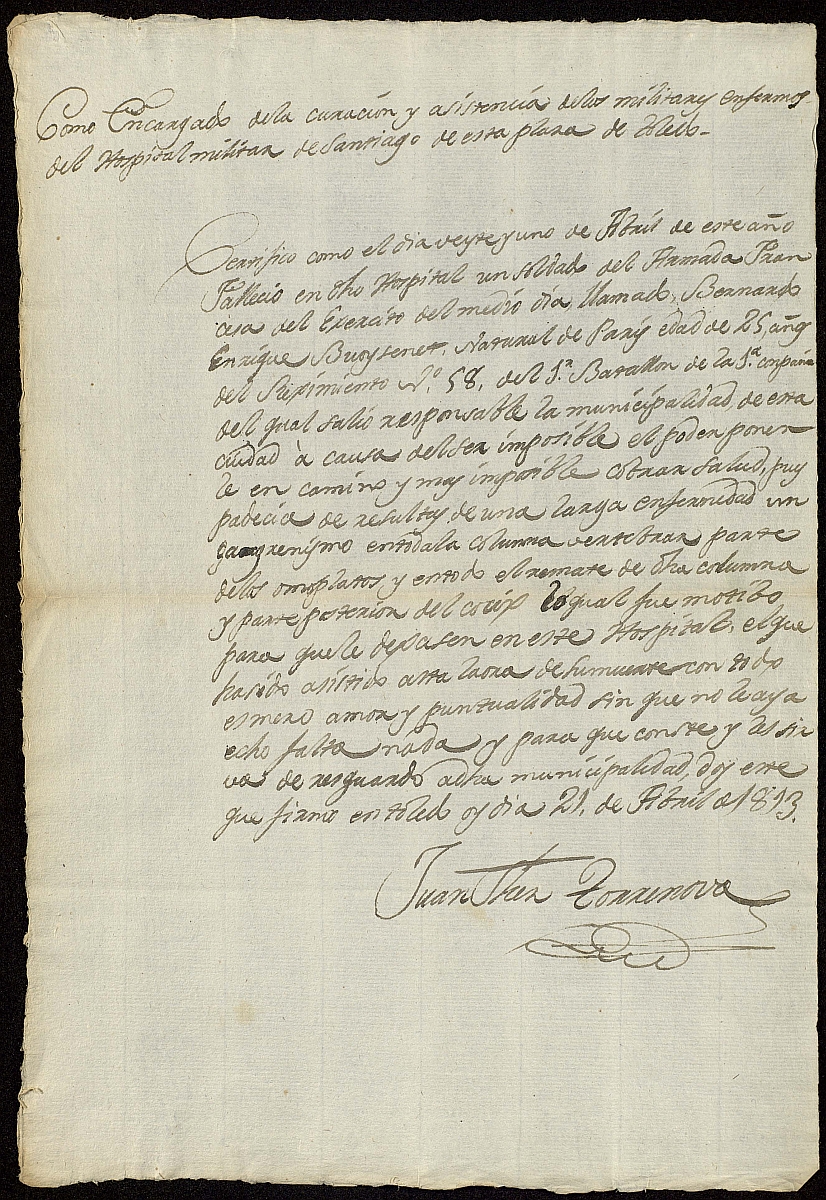 Como Encargado dela curación y asistencia delos militares enfermos
del Hospital militar de Santiago de esta plaza de Toledo-
Certifico como el dia veyte y uno de Abril de este año
fallecio en dho Hospital un soldado del Armada Fran
cesa del Exercito del medio dia, llamado, Bernardo
Enrique Buoysenet, Natural de Paris edad de 25 años
del Reximiento N.º 58, del 1.r Batallon de la 1.a compañia
del qual salio responsable la municipalidad, de esta
ciudad à causa delser imposible el poder poner
le en camino y mas imposible cobrar salud, pues
padecia de resultas de una larga enfermedad un
gangrenismo entodala columna vertebrar parte
delos omoplatos y entodo elremate de dha columna
y parte posterior del cocix lo qual fue motibo
para quele dexasen en este Hospital, el que
hasido asistido asta laora desumuerte con todo
esmero amor y puntualidad sin que no leaya
echo falta nada y para que conste y les sir
va de resguardo adha municipalidad, doy este
que firmo en toledo oy dia 21, de Abril d 1813.
Juan Torrenova